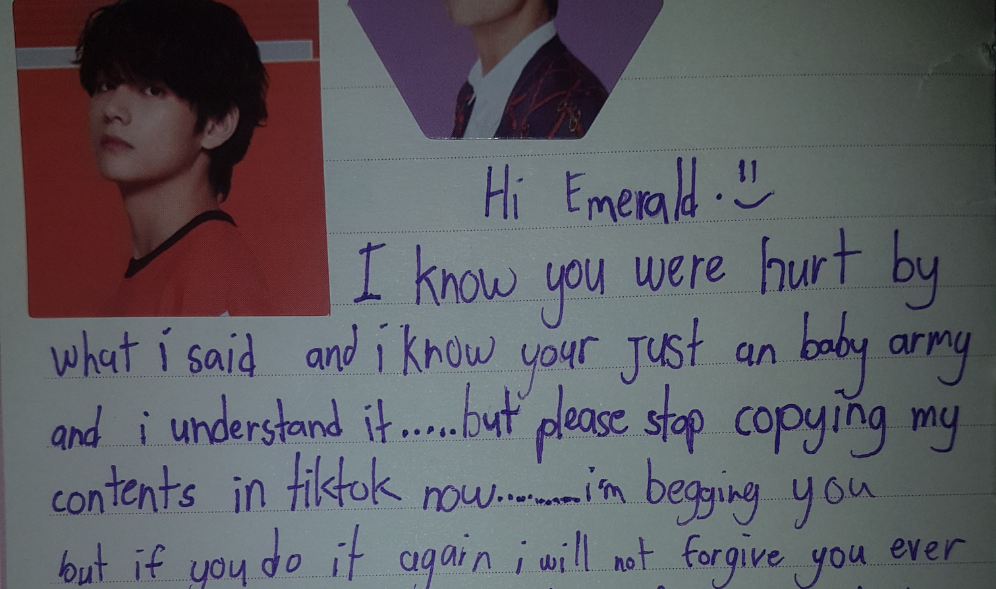 Hi Emerald. :)
I know you were hurt by
what i said and i know your just an baby army
and i understand it.....but please stop copying my
contents in tiktok now..........i'm begging you
but if you do it again i will not forgive you ever